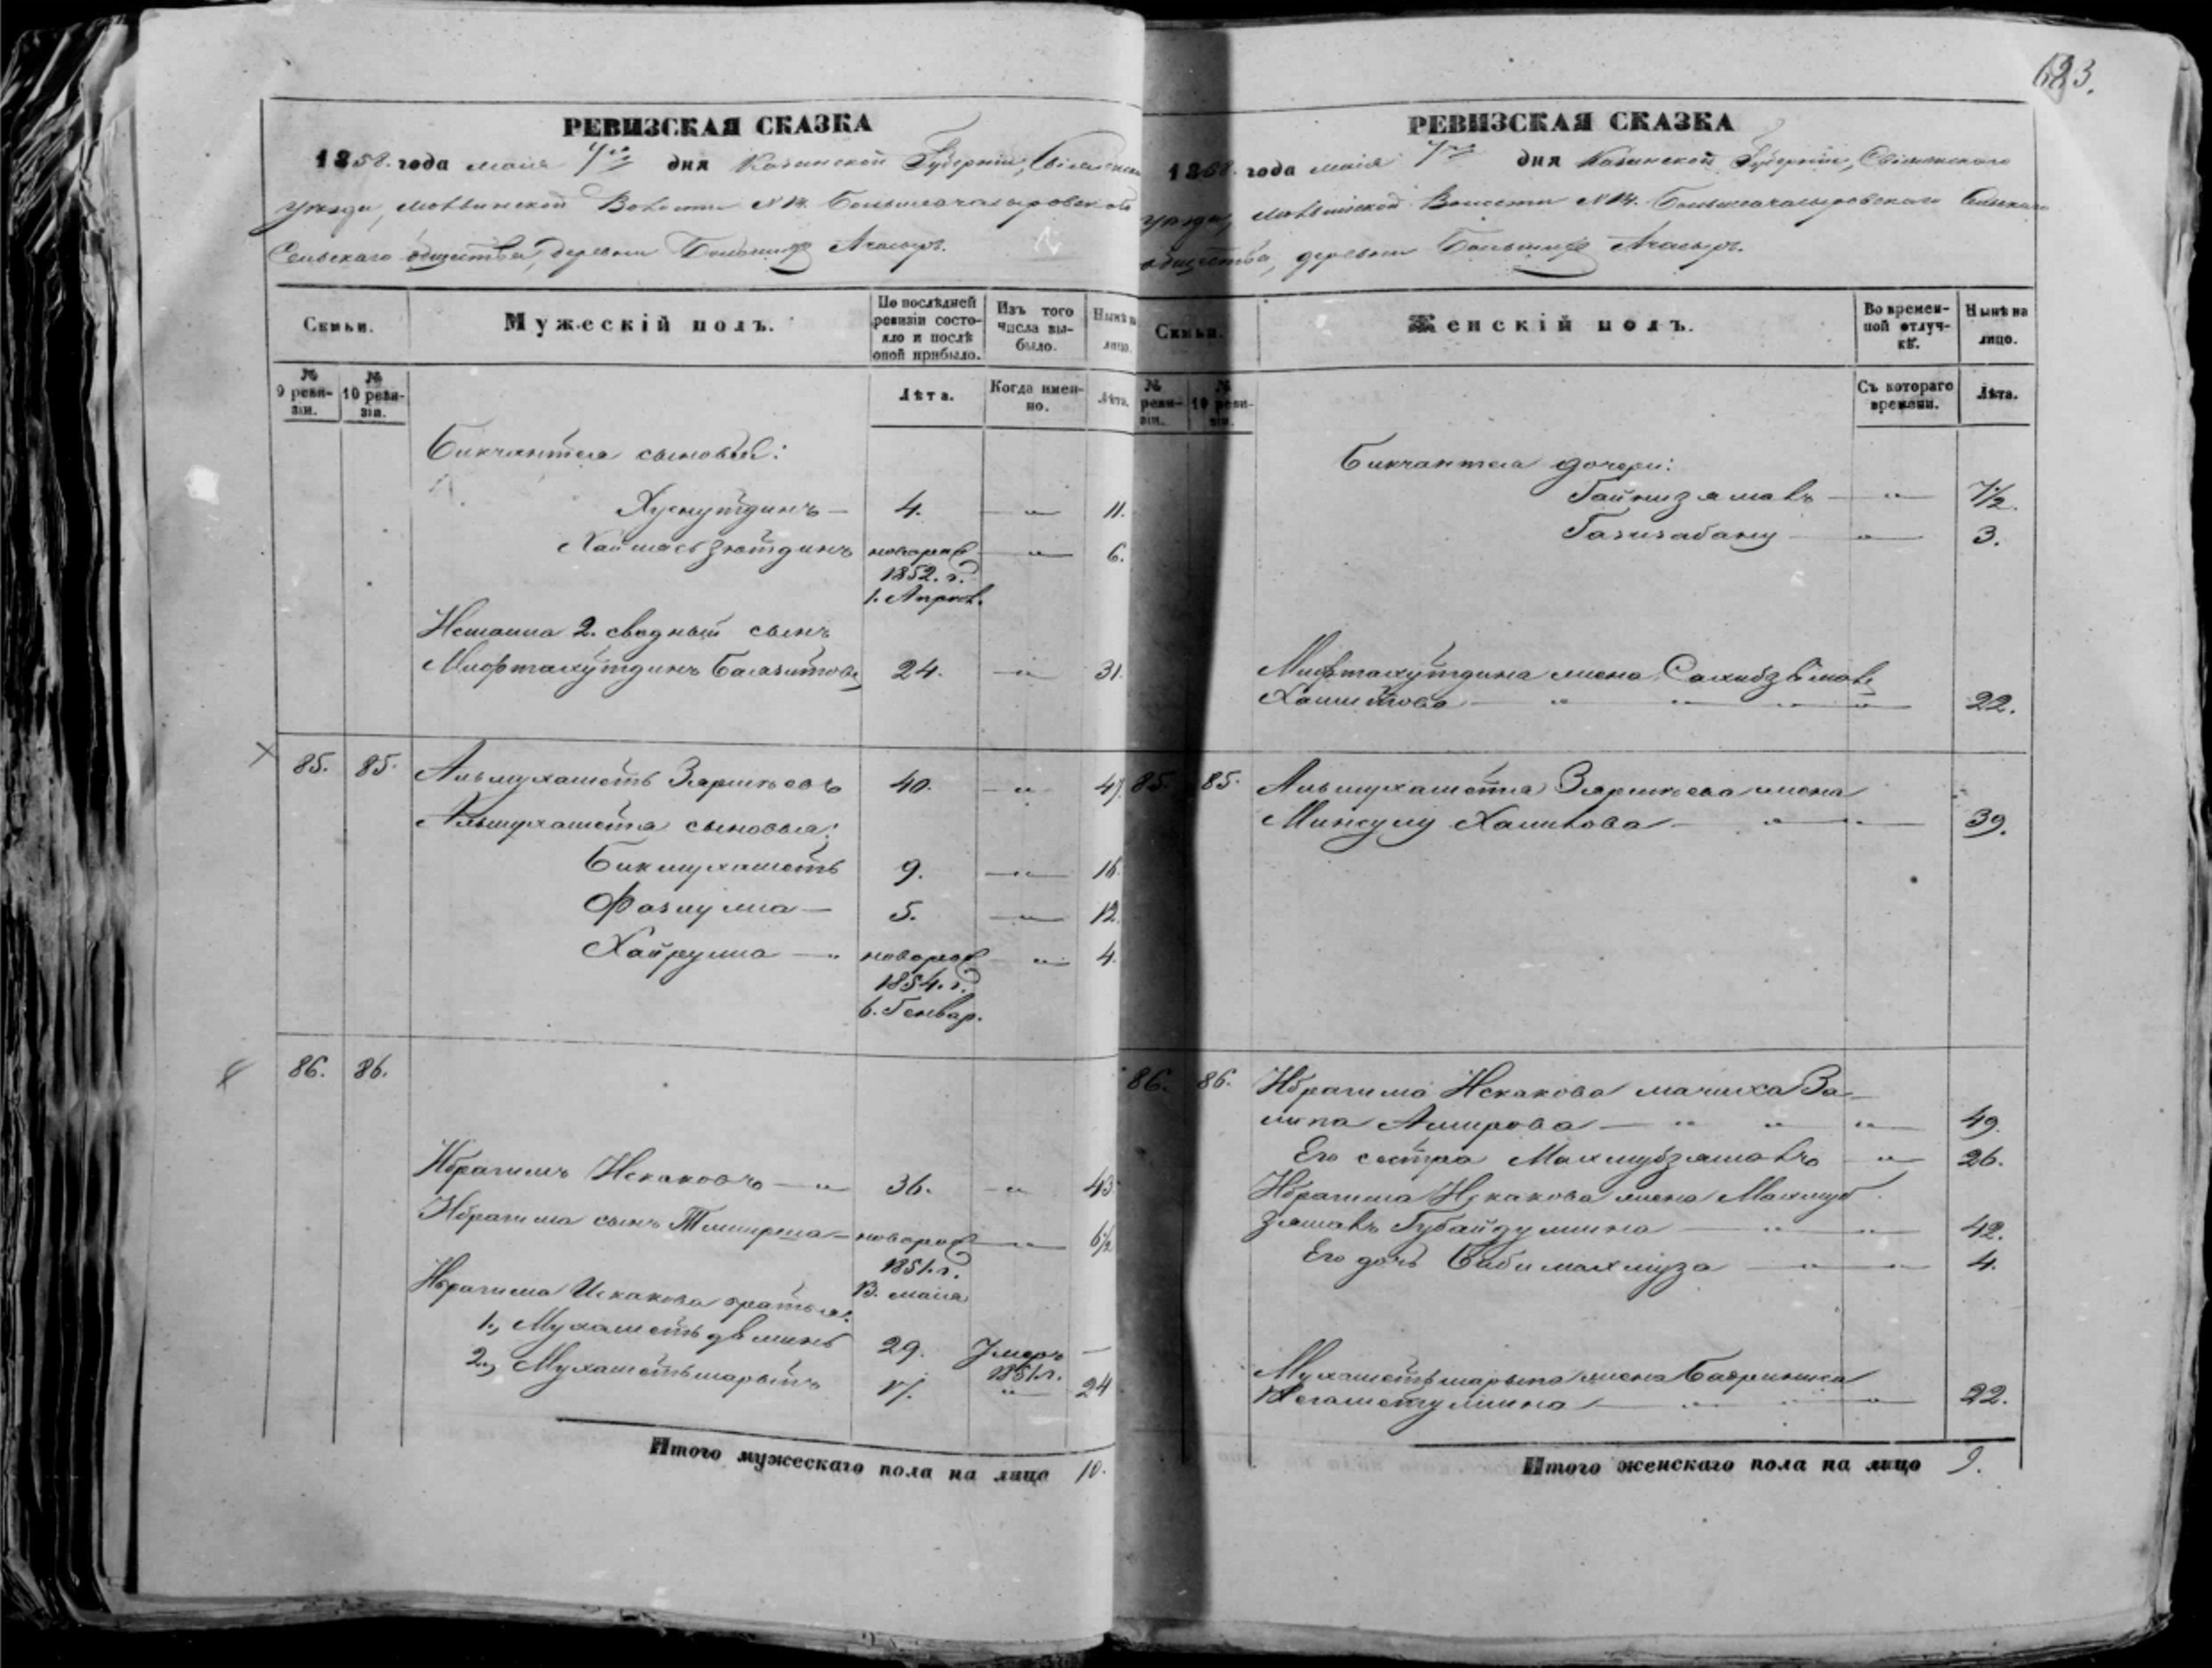 683.
РЕВИЗСКАЯ СКАЗКА
1858. года маія 7го дня Казанской Губерніи, Свіяжскаго
уѣзда, Волости N 14. Большеачасыровскаго
Сельскаго общества, деревни Большихъ Ачасыръ.
Семьи.
Мужескій полъ.
По послѣдней ревизіи состояло и послѣ оной прибыло.
Изъ того числа выбыло.
Нынѣ на лицо.
№ 9 ревизіи.
№ 10 ревизіи.
Лѣта.
Когда именно.
Лѣта.
Бикчантея сыновья:
Хуснутдинъ — 4. — " — 11.
новорож — " — 6.
1852. г.
1. Апрѣл.
2. сводный сынъ
Мифтахутдинъ 24. — " — 31.
85. 85. Альмухаметь Зярипьевъ 40. — " — 47.
Альмухаметя сыновья:
Бикмухаметь 9. — " — 16.
Фазлулла — 5. — " — 12.
Хайрулла — " новорож — " — 4.
1854. г.
6. Генвар.
86. 86.
Ибрагимъ Искаковъ — " 36. — " 43
Ибрагима сынъ Тимирша — новорож — " — 6½
1851. г.
маія
Ибрагима Искакова братья:
1., 29. Умеръ —
1851. г.
2., Мухаметьшарыпъ 17. " 24
Итого мужескаго пола на лицо 10.
РЕВИЗСКАЯ СКАЗКА
1858. года маія 7го дня Казанской Губерніи, Свіяжскаго
уѣзда, Волости N 14. Большеачасыровскаго Сельскаго
общества, деревни Большихъ Ачасыръ.
Семьи.
Женскій полъ.
Во временной отлучкѣ.
Нынѣ на лицо.
№ ревизіи.
№ 10 ревизіи.
Съ котораго времени.
Лѣта.
Бикчантея дочери:
Гайнизямалъ — " — 7½.
Газизабану — " — 3.
Мифтахутдина жена Сахибзямалъ
Хамитова — " " " " — 22.
85. 85. Альмухаметя Зярипьева жена
Минсулу Халитова — " — " — 39.
86. 86. Ибрагима Искакова мачиха За-
липа Амирова — " " " — 49.
Его сестра Махмубзямалъ — " — 26.
Ибрагима Искакова жена Махмуб
зямалъ Губайдуллина — " — " — 42.
Его дочь Бибимахмуза — " — " — 4.
Мухаметьшарыпа жена Бадриниса
— " " " — 22.
Итого женскаго пола на лицо 9.